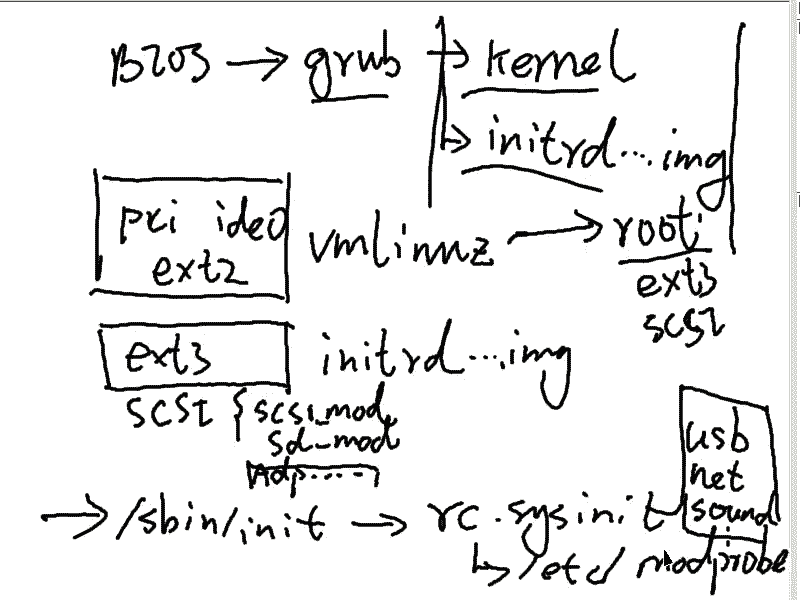 BIOS → grub → kernel
→ initrd....img
pci ide0
ext2
vmlinuz → root:
ext3
scsi
ext3 initrd....img
SCSI { scsi_mod
sd_mod
usb
net
sound
→ /sbin/init → rc.sysinit
↳ /etc/ modprobe